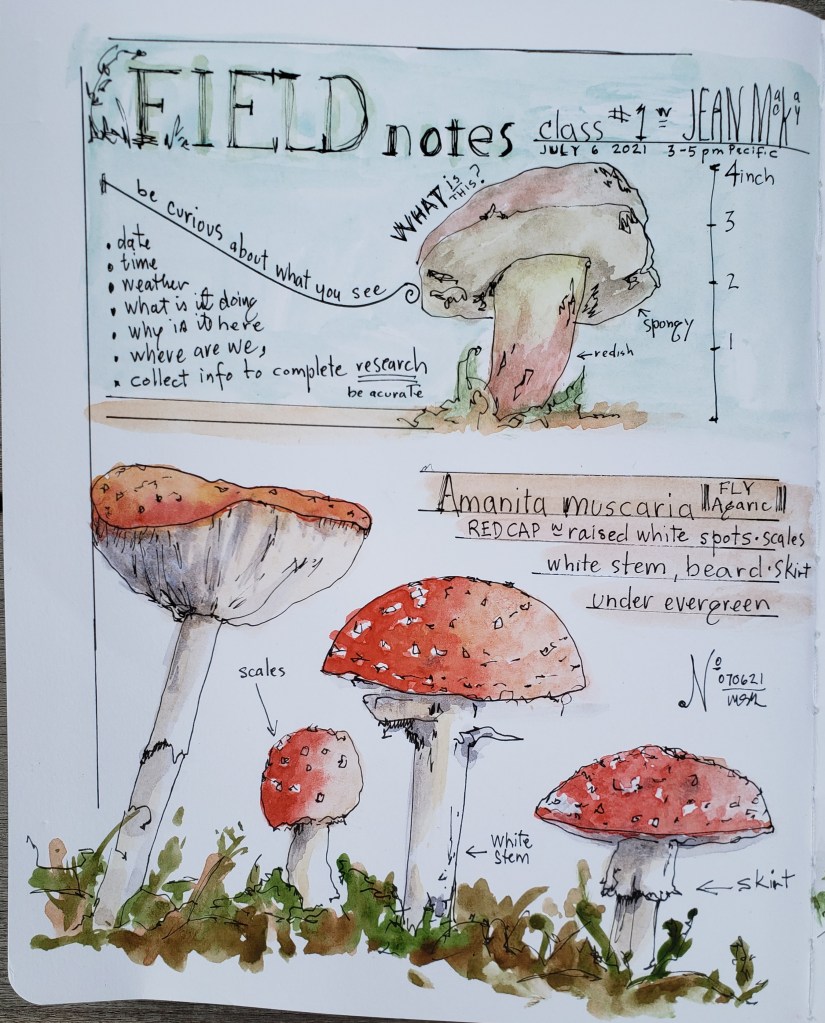 FIELD notes class #1 w JEAN MaoKay
JULY 6 2021 3-5 pm Pacific
be curious about what you see
• date
• time
• weather
• what is it doing
• why is it here
• where are we,
• collect info to complete research
be acurate
WHAT IS THIS?
4inch
3
2
1
spongy
redish
Amanita muscaria FLY Agaric
RED CAP w raised white spots • scales
white stem, beard • skirt
under evergreen
No 070621
scales
white stem
skirt